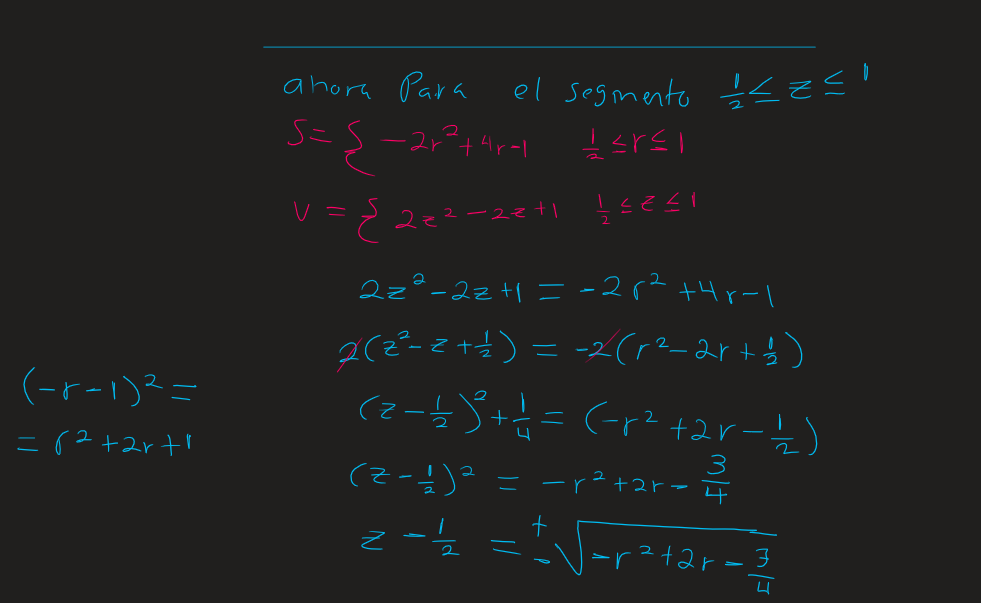 ahora Para el segmento 1/2 ≤ z ≤ 1
S = { -2r² + 4r - 1   1/2 ≤ r ≤ 1
V = { 2z² - 2z + 1   1/2 ≤ z ≤ 1
2z² - 2z + 1 = -2r² + 4r - 1
2(z² - z + 1/2) = -2(r² - 2r + 1/2)
(z - 1/2)² + 1/4 = (-r² + 2r - 1/2)
(z - 1/2)² = -r² + 2r - 3/4
z - 1/2 = ±√(-r² + 2r - 3/4)
(-r - 1)² =
= r² + 2r + 1